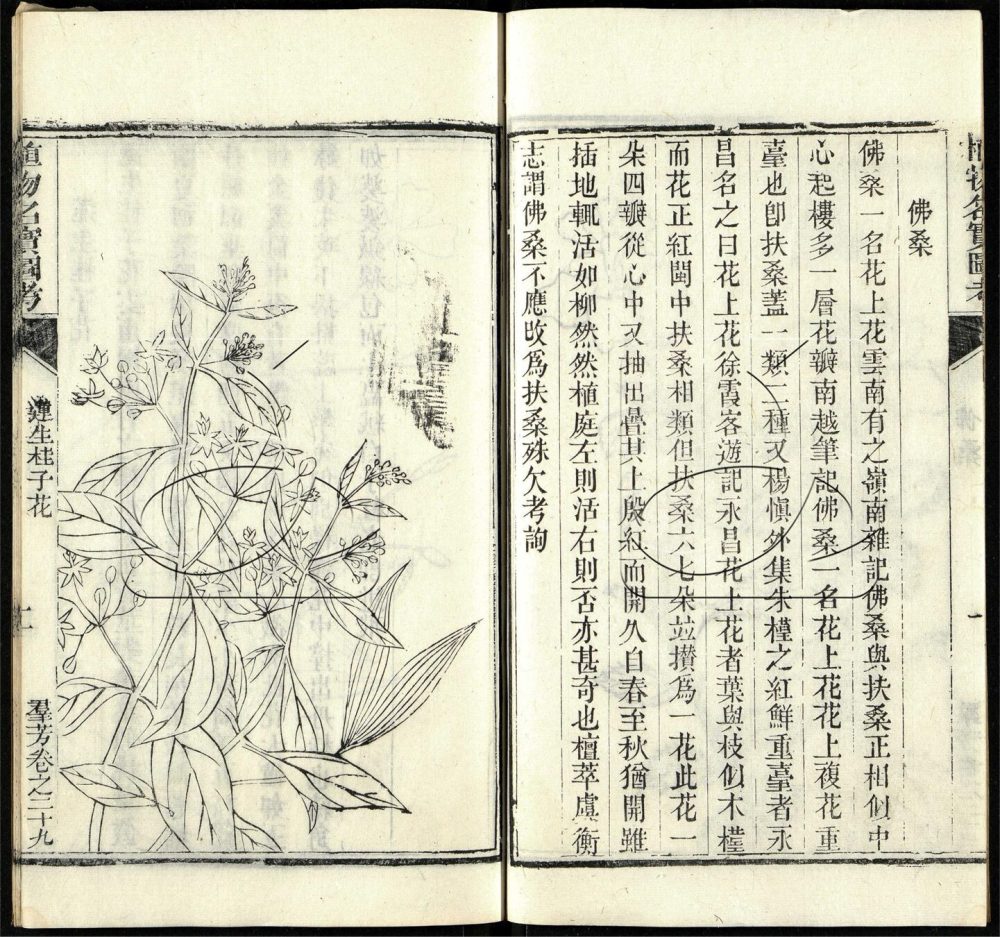 植物名實圖考
一
佛桑
佛桑一名花上花雲南有之嶺南雜記佛桑與扶桑正相似中
心起樓多一層花瓣南越筆記佛桑一名花上花花上複花重
臺也卽扶桑蓋一類二種又楊愼外集朱槿之紅鮮重臺者永
昌名之曰花上花徐霞客遊記永昌花上花者葉與枝似木槿
而花正紅閩中扶桑相類但扶桑六七朵竝攢爲一花此花一
朵四瓣從心中又抽出疊其上殷紅而開久自春至秋猶開雖
插地輒活如柳然然植庭左則活右則否亦甚奇也檀萃虞衡
志謂佛桑不應攺爲扶桑殊欠考詢
植物名實圖考
蓮生桂子花
二
羣芳卷之二十九